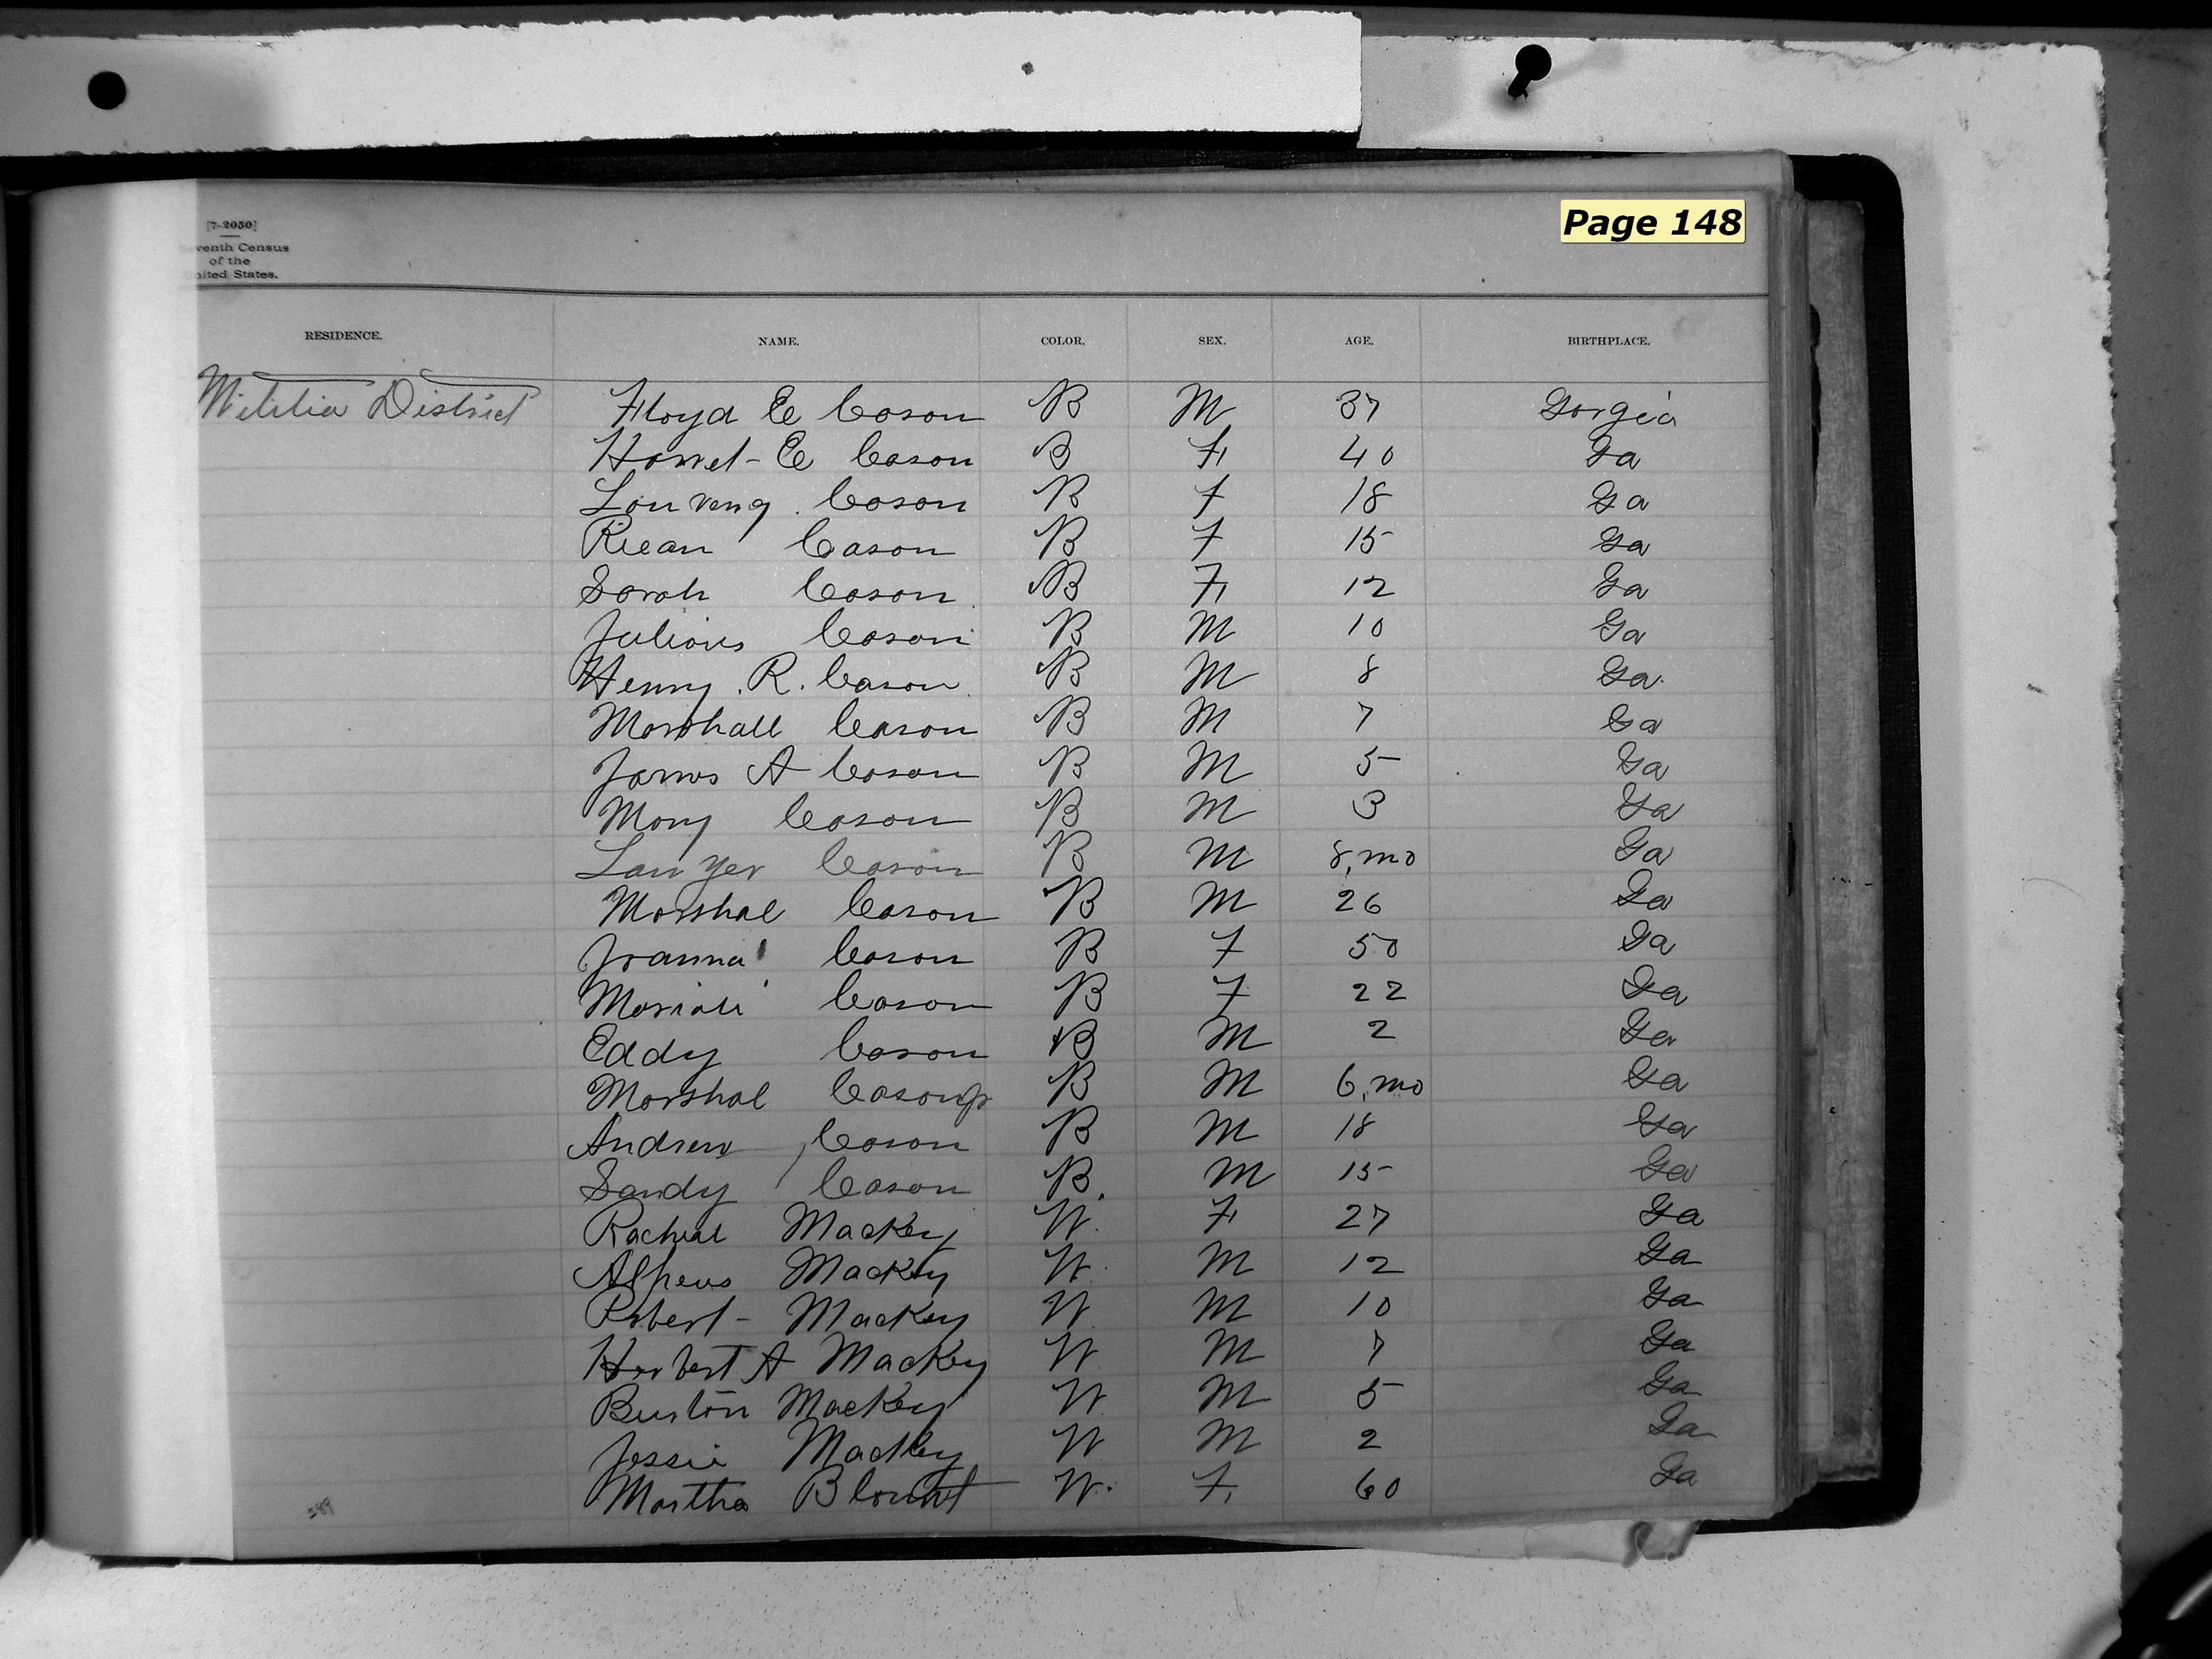 Page 148
[7-2050]
venth Census
of the
nited States.
RESIDENCE. NAME. COLOR. SEX. AGE. BIRTHPLACE.
Militia District Floyd E Cason B M 37 Gorgia
Harret E Cason B F 40 Ga
Cason B F 18 Ga
Riean Cason B F 15 Ga
Sarah Cason B F 12 Ga
Julious Cason B M 10 Ga
Henry R. Cason B M 8 Ga
Marshall Cason B M 7 Ga
James A Cason B M 5 Ga
Mary Cason B M 3 Ga
Lawyer Cason B M 8,mo Ga
Marshal Cason B M 26 Ga
Joanna Cason B F 50 Ga
Cason B F 22 Ga
Eddy Cason B M 2 Ga
Marshal Cason Jr B M 6,mo Ga
Andrew Cason B M 18 Ga
Sandy Cason B M 15 Ga
Racheal Mackey W F 27 Ga
Alpheus Mackey W M 12 Ga
Robert Mackey W M 10 Ga
Herbert A Mackey W M 7 Ga
Burton Mackey W M 5 Ga
Jessie Mackey W M 2 Ga
Martha Blount W. F 60 Ga